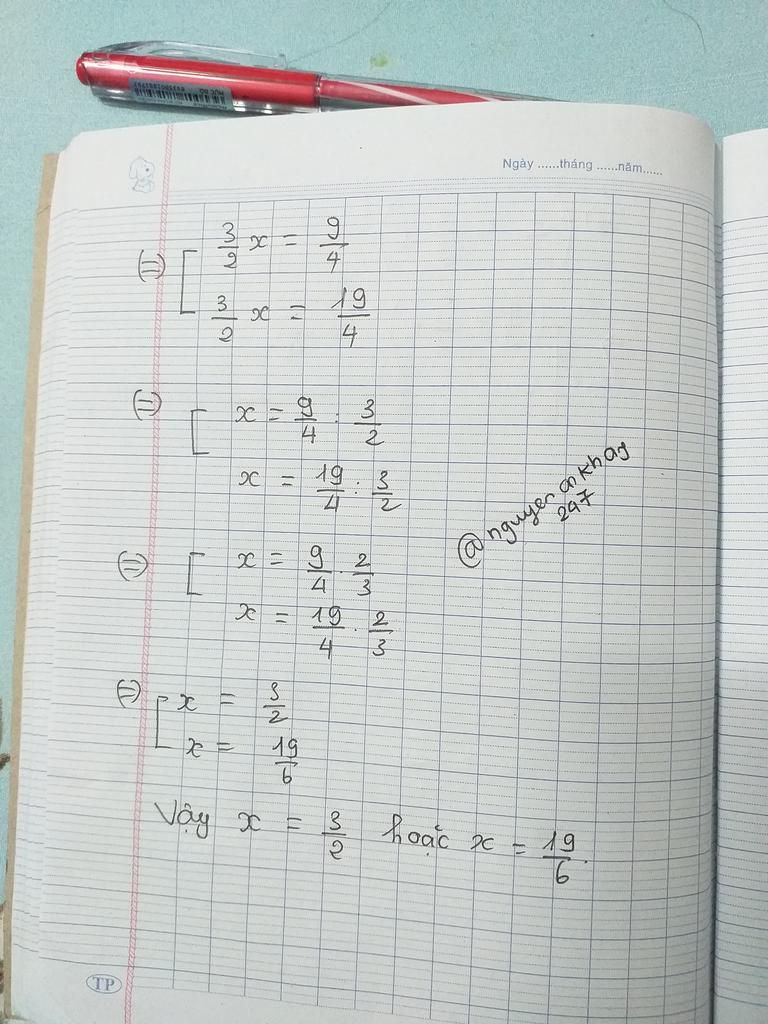 MỰC ĐỎ
Ngày ......tháng ......năm......
(=) [ 3/2 x = 9/4
3/2 x = 19/4
(=) [ x = 9/4 : 3/2
x = 19/4 : 3/2
@nguyen ankhay
247
(=) [ x = 9/4 . 2/3
x = 19/4 . 2/3
(=) [ x = 3/2
x = 19/6
Vậy x = 3/2 hoặc x = 19/6.
TP